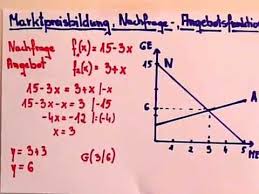 Marktpreisbildung, Nachfrage-, Angebotsfunktion
Nachfrage f₁(x) = 15-3x
Angebot f₂(x) = 3+x
15-3x = 3+x /-x
15-3x-x = 3 /-15
-4x = -12 /:(-4)
x = 3
y = 3+3
y = 6
G(3/6)
GE
15
N
A
6
0 1 2 3 4 5 ME